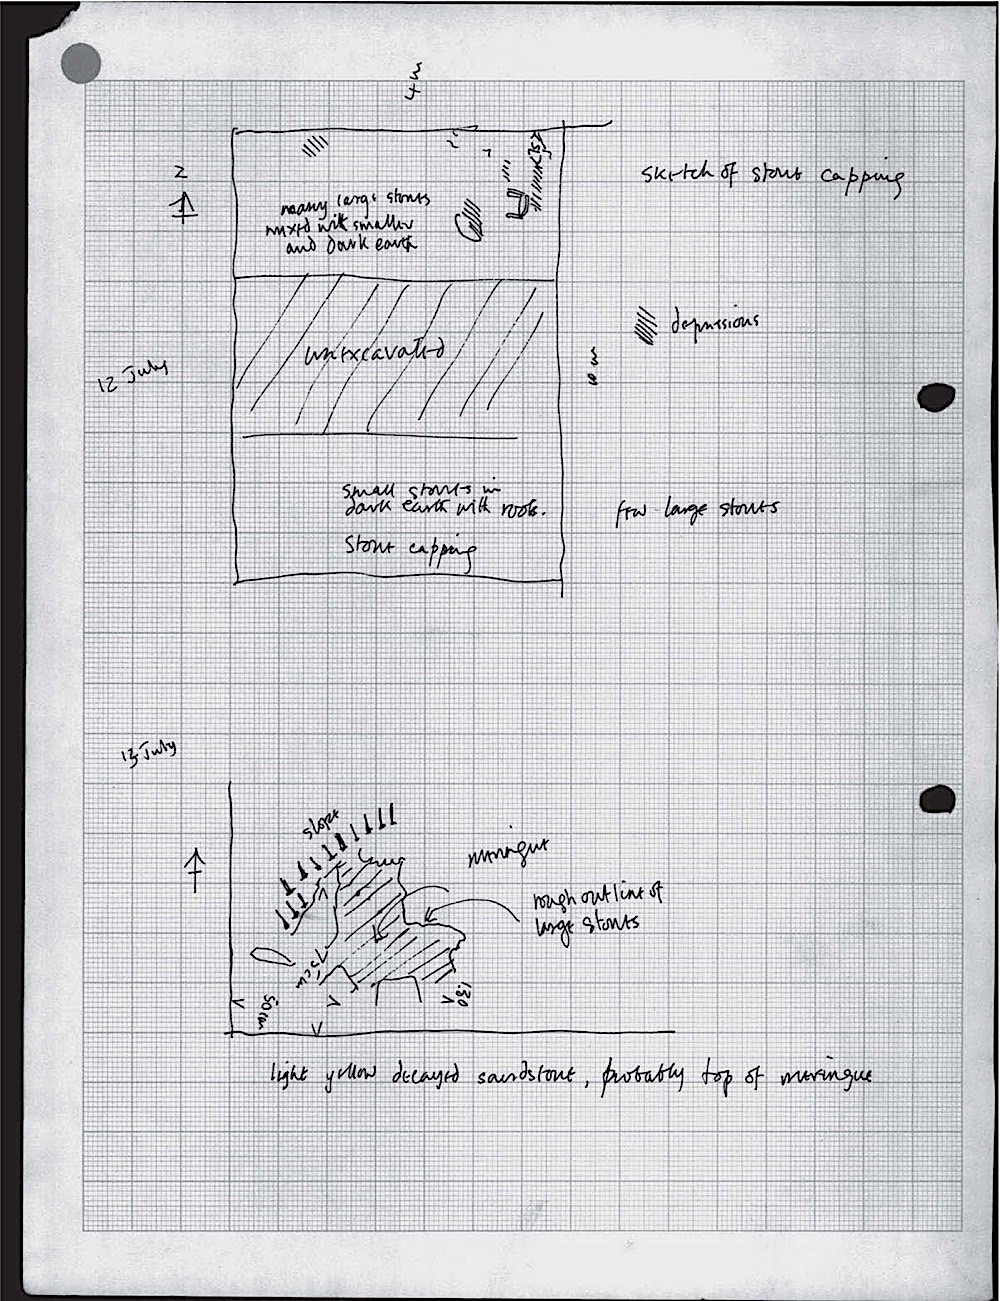 4 m
sketch of stone capping
N
many large stones
mixed with smaller
and dark earth
depressions
unexcavated
12 July
small stones in
dark earth with roots.
few large stones
stone capping
13 July
slope
meringue
rough outline of
large stones
75 cm
50 cm
1.30
light yellow decayed sandstone, probably top of meringue